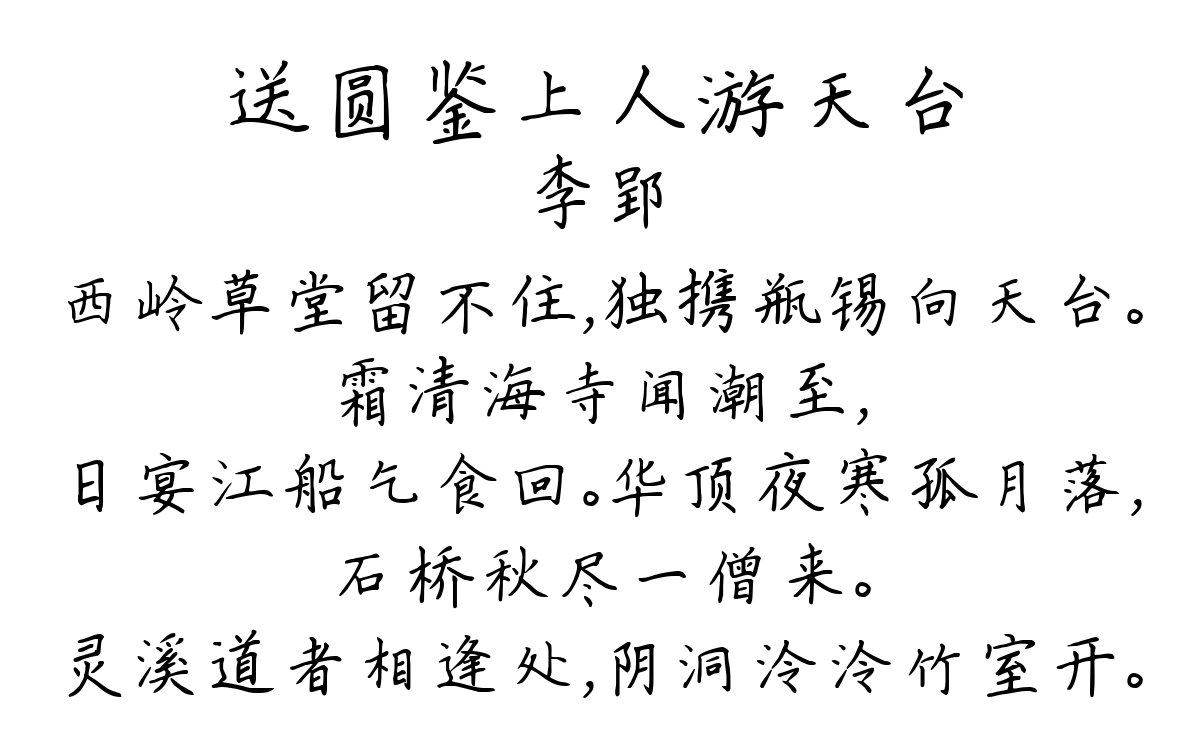 送圆鉴上人游天台
李郢
西岭草堂留不住,独携瓶锡向天台。
霜清海寺闻潮至,
日宴江船乞食回。华顶夜寒孤月落,
石桥秋尽一僧来。
灵溪道者相逢处,阴洞泠泠竹室开。